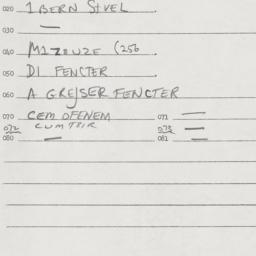 020 1 BERN STVEL
030 —
040 MIZOUZE (256
050 DI FENCTER
060 A GREJSER FENCTER
070 CEM OFENEM 071 —
072 CUMTSIR 073 —
080 — 081 —